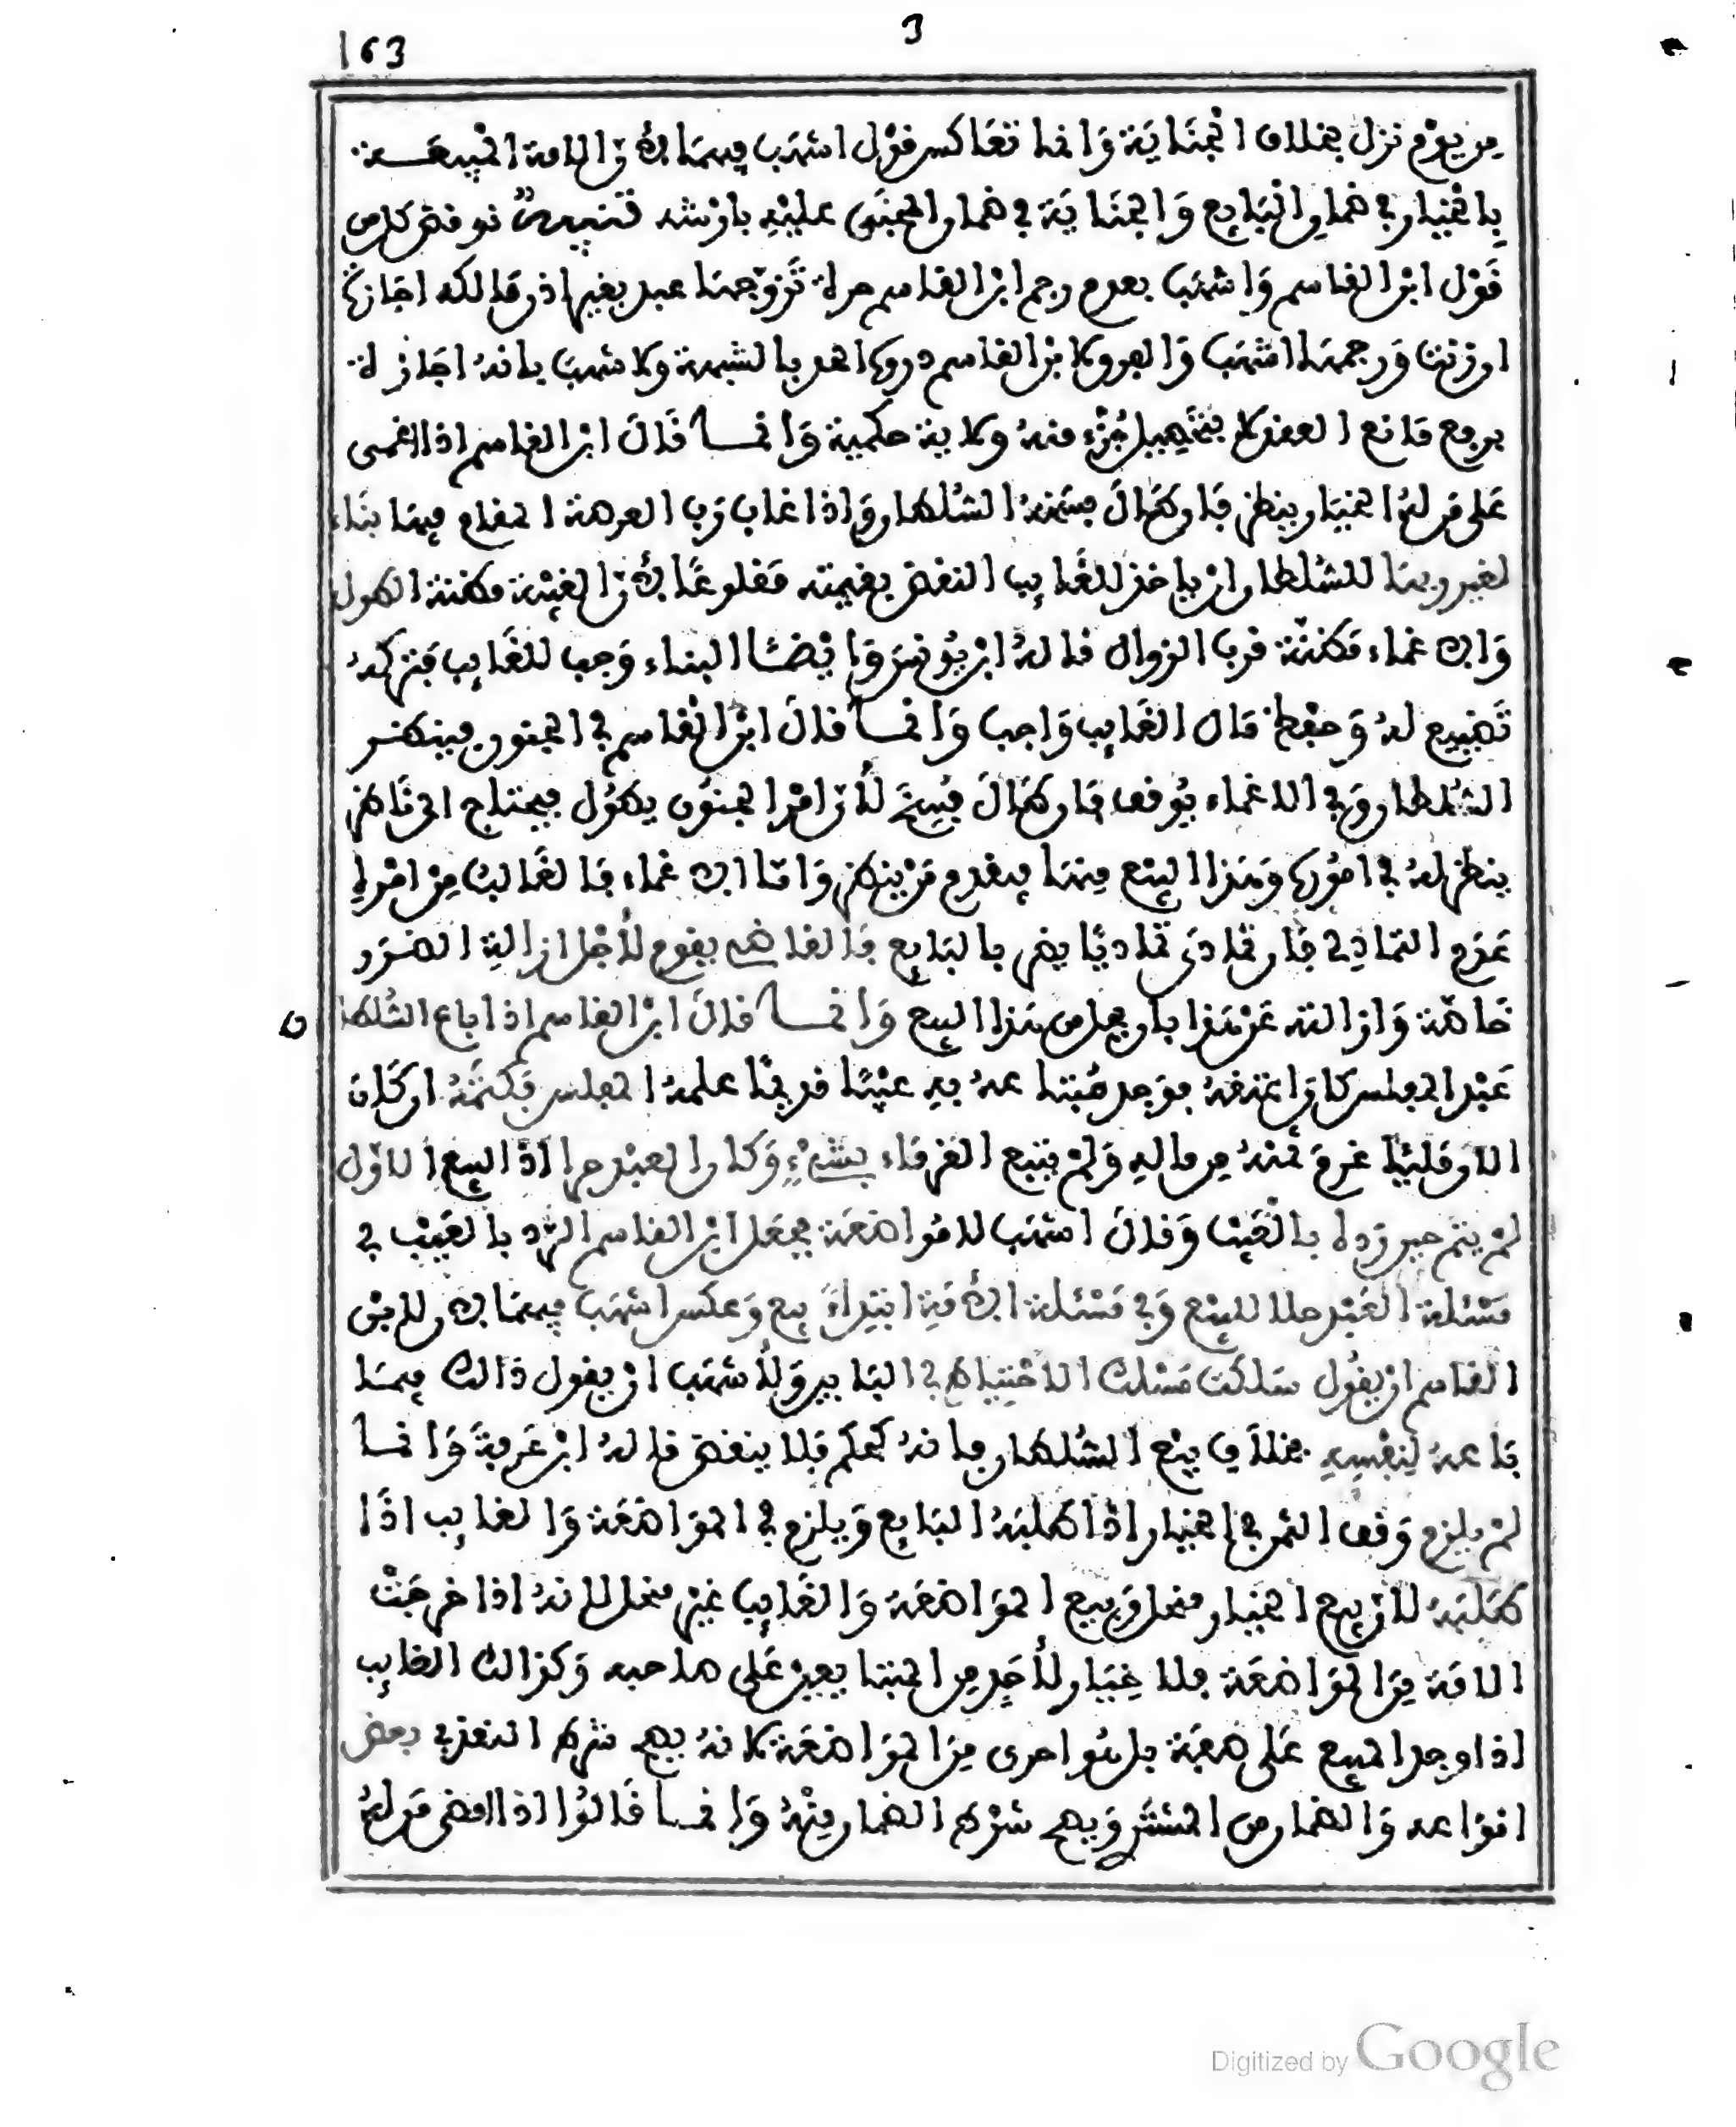 163
3
من يوم نزل بخلاف الجناية وانما تعاكس قول اشهب فيهما لأن الامة المبيعة
بالخيار في ضمان البايع والجناية في ضمان المجنى عليه بارشد تنبيه نوقض كل من
قول ابن القاسم واشهب بعدم رجم ابن القاسم حرة تزوجها عبد بغير اذن مالكه اجازه
اورده ورجمها اشهب والعرو لابن القاسم درء الحد بالشبهة ولاشهب بانه اجازة
برفع مانع العقد لا بتحصيل جزء منه ولاية حكمية وانما قال ابن القاسم اذا اغمى
على من له الخيار ينظر فان طال فسخه السلطان واذا غاب رب العرصة المقام فيها بناء
لغير ربها للسلطان ان ياخذ للغايب النقض بقيمته مقلوعا لأن الغيبة مظنة الطول
والاغماء مظنة قرب الزوال قاله ابن يونس وايضا البناء وجب للغايب فتركه
تضييع له وحفظ مال الغايب واجب وانما قال ابن القاسم في المجنون فينظر
السلطان وفي الاغماء يوقف فان طال فسخ لأن امر الجنون يطول فيحتاج الى ناظر
ينظر له في اموره وهذا البيع منها فيقدم من ينظر واما الاغماء فالغالب من امره
عدم التمادى فان تمادى تماديا يضر بالبايع فالقاضى يقوم لأجل ازالة الضرر
خاصة وازالته عن هذا بان يحل من هذا البيع وانما قال ابن القاسم اذا باع السلطا
عبد المفلس كان اعتقه فوجد مبتاعه به عيبا قديما علمه المفلس فكتمه ان كان
الان مليا غرم ثمنه من ماله ولم يتبع الغرماء بشىء وكان العبد حرا اذ البيع الاول
لم يتم حين رده بالعيب وقال اشهب لا مواضعة فجعل ابن القاسم الرد بالعيب في
مسئلة العبد حلا للبيع وفي مسئلة الامة ابتداء بيع وعكس اشهب فيهما ولابن
القاسم ان يقول سلكت مسلك الاحتياط في البابين ولأشهب ان يقول ذالك فيما
باعه لنفسه بخلاف بيع السلطان فانه كحكم فلا ينقض قاله ابن عرفة وانما
لم يلزم وقف الثمن في الخيار اذا طلبه البايع ويلزم في المواضعة والغايب اذا
طلبه لأن بيع الخيار منحل وبيع المواضعة والغايب غير منحل لانه اذا خرجت
الامة من المواضعة فلا خيار لأحد من المتبايعين على صاحبه وكذالك الغايب
اذا وجد المبيع على صفة بل هو احرى من المواضعة لانه يصح شرط النقد في بعض
انواعه والضمان من المشترى ويصح شرط الضمان منه وانما قالوا اذا امضى من له
Digitized by Google